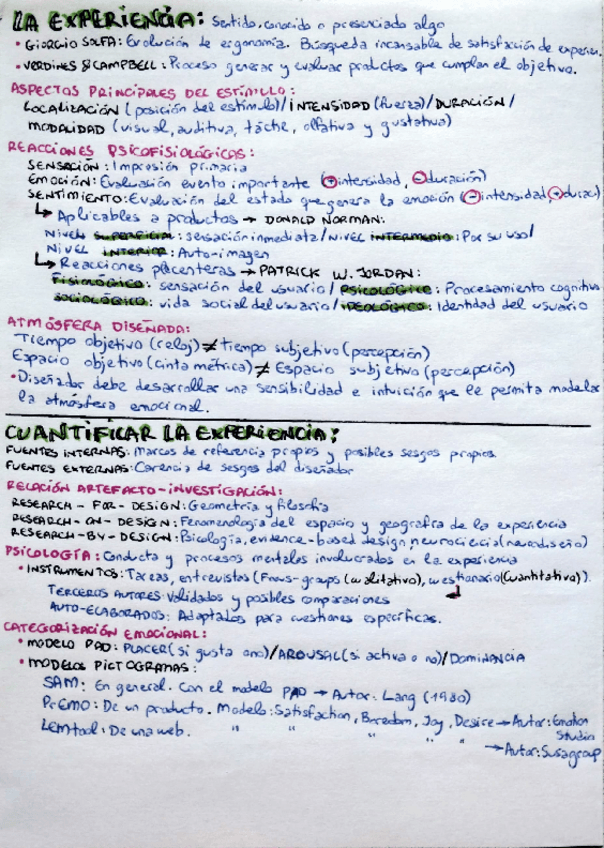 LA EXPERIENCIA: Sentido, conocido o presenciado algo
• GIORGIO SOLFA: Evolución de ergonomía. Búsqueda incansable de satisfacción de experien.
• VERDINES & CAMPBELL: Proceso generar y evaluar productos que cumplan el objetivo.
ASPECTOS PRINCIPALES DEL ESTÍMULO:
LOCALIZACIÓN (posición del estímulo)/INTENSIDAD (fuerza)/DURACIÓN/
MODALIDAD (visual, auditiva, táctil, olfativa y gustativa)
REACCIONES PSICOFISIOLÓGICAS:
SENSACIÓN: Impresión primaria
EMOCIÓN: Evaluación evento importante (+intensidad, -duración)
SENTIMIENTO: Evaluación del estado que genera la emoción (-intensidad, +durac)
↳ Aplicables a productos → DONALD NORMAN:
NIVEL SUPERFICIAL: sensación inmediata/NIVEL INTERMEDIO: Por su uso/
NIVEL INTERIOR: Auto-imagen
↳ Reacciones placenteras → PATRICK W. JORDAN:
FISIOLÓGICO: sensación del usuario/ PSICOLÓGICO: Procesamiento cognitivo
SOCIOLÓGICO: vida social del usuario/ IDEOLÓGICO: Identidad del usuario
ATMÓSFERA DISEÑADA:
Tiempo objetivo (reloj) ≠ tiempo subjetivo (percepción)
Espacio objetivo (cinta métrica) ≠ Espacio subjetivo (percepción)
• Diseñador debe desarrollar una sensibilidad e intuición que le permita modelar
la atmósfera emocional.
CUANTIFICAR LA EXPERIENCIA:
FUENTES INTERNAS: Marcos de referencia propios y posibles sesgos propios.
FUENTES EXTERNAS: Carencia de sesgos del diseñador
RELACIÓN ARTEFACTO-INVESTIGACIÓN:
RESEARCH-FOR-DESIGN: Geometría y filosofía
RESEARCH-ON-DESIGN: Fenomenología del espacio y geografía de la experiencia
RESEARCH-BY-DESIGN: Psicología, evidence-based design, neurociecia (neurodiseño)
PSICOLOGÍA: Conducta y procesos mentales involucrados en la experiencia
• INSTRUMENTOS: Tareas, entrevistas (Focus-groups (cualitativo), cuestionario (Cuantitativo)).
TERCEROS AUTORES: Validados y posibles comparaciones
AUTO-ELABORADOS: Adaptados para cuestiones específicas.
CATEGORIZACIÓN EMOCIONAL:
• MODELO PAD: PLACER (si gusta o no)/AROUSAL (si activa o no)/DOMINANCIA
• MODELOS PICTOGRAMAS:
SAM: En general. Con el modelo PAD → Autor: Lang (1980)
PrEMO: De un producto. Modelo: Satisfaction, Boredom, Joy, Desire → Autor: Emotion
Studio
LEMtool: De una web. " " " " " → Autor: Susagroup